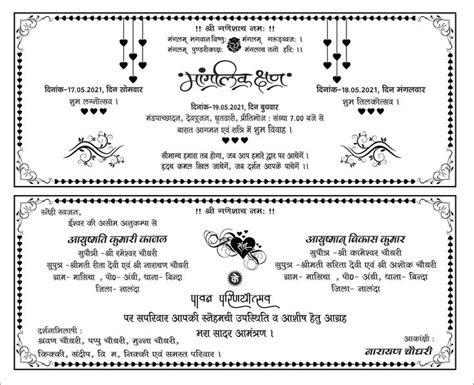 !! श्री गणेशाय नम: !!
मंगलम् भगवान विष्णु: मंगलम् गरूड़ध्वज: ।
मंगलम् पुण्डरीकाक्ष: मंगलाय तनो हरि: ।।
मांगलिक क्षण
दिनांक-17.05.2021, दिन सोमवार
शुभ लग्नोत्सव ।
दिनांक-18.05.2021, दिन मंगलवार
शुभ तिलकोत्सव ।
दिनांक-19.05.2021, दिन बुधवार
मंडपाच्छादन, देवपूजन, घृतढारी, प्रीतिभोज : संध्या 7.00 बजे से
बारात आगमन एवं रात्रि में शुभ विवाह ।
सौभाग्य हमारा तब होगा, जब आप हमारे द्वार पर आयेगें ।
हृदय कमल खिल जायेगें, जब दर्शन आपके पायेगें ।।
!! श्री गणेशाय नम: !!
स्नेही स्वजन,
ईश्वर की असीम अनुकम्पा से
आयुष्मति कुमारी काजल
सुपौत्री -श्री रमेश्वर चौधरी
सुपुत्र -श्रीमती रीता देवी एवं श्री नारायण चौधरी
ग्राम- मासिचा , पो०- अंबी, थाना- बिन्दा
जिला- नालंदा
आयुष्मान् विकास कुमार
सुपौत्र -श्री कामेश्वर चौधरी
सुपुत्र -श्रीमती सरिता देवी एवं श्री अशोक चौधरी
ग्राम- मासिचा , पो०- अंबी, थाना- बिन्दा
जिला- नालंदा
पावन परिणयोत्सव
पर सपरिवार आपकी स्नेहमयी उपस्थिति व आशीष हेतु आग्रह
भरा सादर आमंत्रण ।
दर्शनाभिलाषी :
श्रवण चौधरी, पप्पु चौधरी, मुन्ना चौधरी,
किक्की, संदीप, वि म, निक्की एवं समस्त परिवार ।
आकांक्षी :
नारायण चौधरी